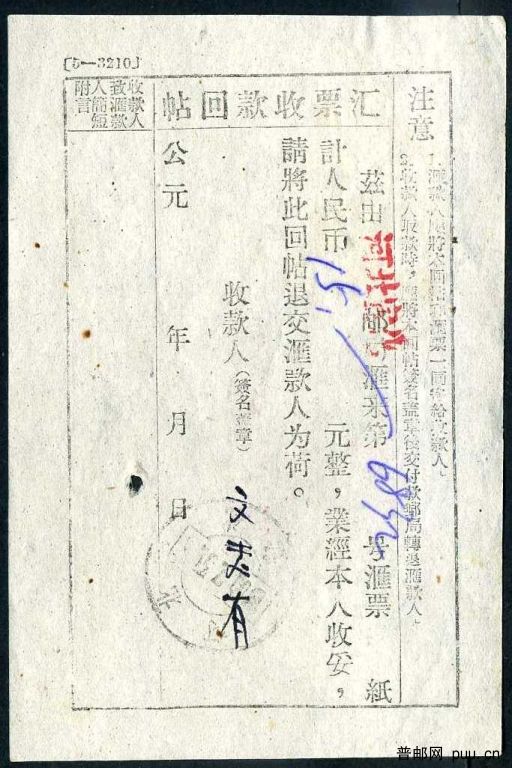 [5—3210]
汇票收款回帖
注意
1. 滙款人應將本回帖和滙票一同寄給收款人.
2. 收款人取款時,應將本回帖簽名盖章後交付款郵局轉退滙款人.
茲由 河北 郵局滙来第 号滙票 紙
計人民币 151 元整,業經本人收妥,
請將此回帖退交滙款人为荷。
收款人(簽名盖章)
公元 年 月 日
收款人
致滙款
人簡短
附言
普邮网 puu.cn